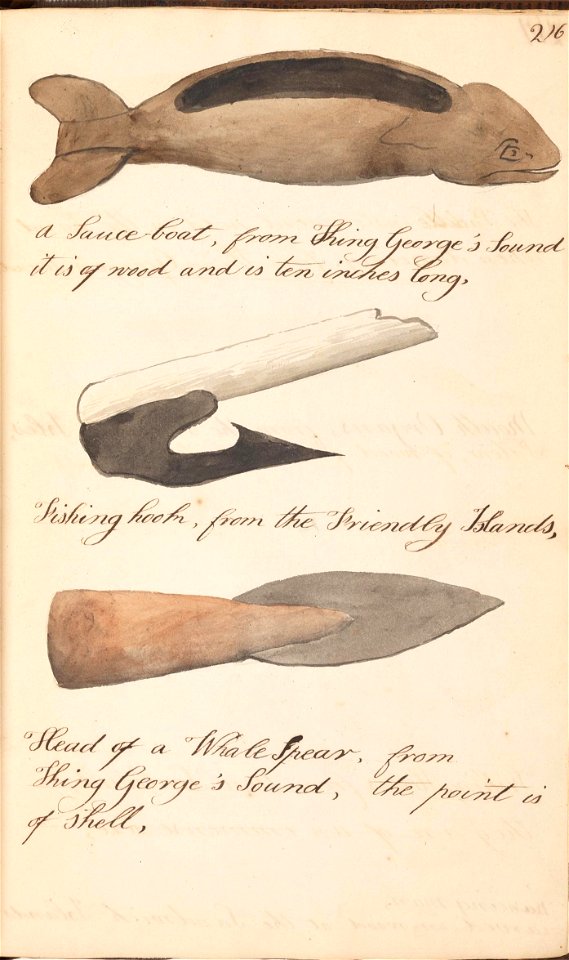 216
a Sauce-boat, from King George's Sound
it is of wood and is ten inches long,
Fishing hook, from the Friendly Islands,
Head of a Whale Spear, from
King George's Sound, the point is
of shell,